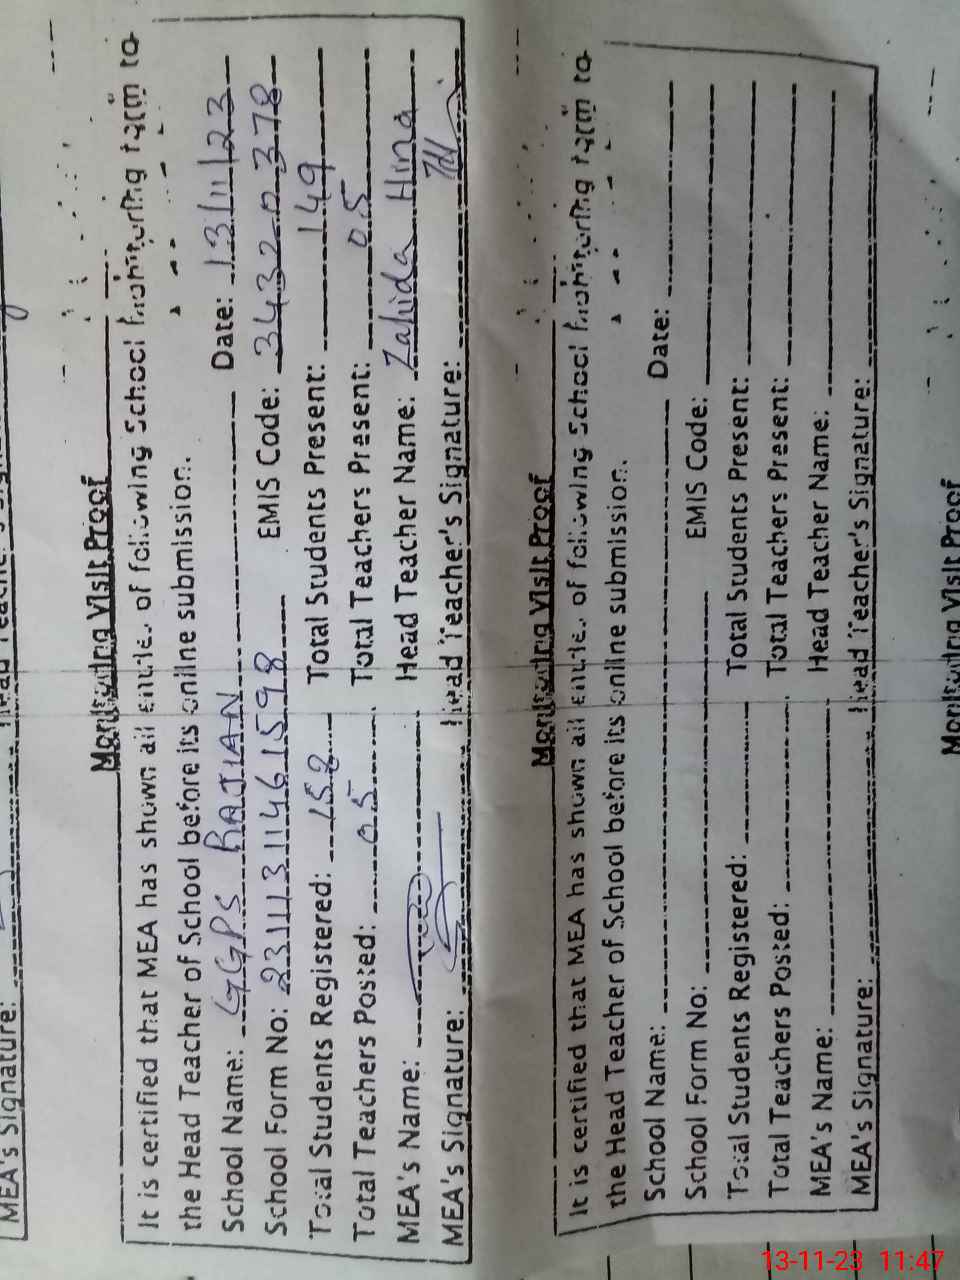 MEA's Signature:
Monitoring Visit Proof
It is certified that MEA has shown all entries of following School Monitoring Form to
the Head Teacher of School before its online submission.
School Name: GGPS RAJIAN Date: 13/11/23
School Form No: 23111311461598 EMIS Code: 34320378
Total Students Registered: 158 Total Students Present: 149
Total Teachers Posted: 05 Total Teachers Present: 05
MEA's Name: Head Teacher Name: Zahida Hina
MEA's Signature: Head Teacher's Signature:
Monitoring Visit Proof
It is certified that MEA has shown all entries of following School Monitoring Form to
the Head Teacher of School before its online submission.
School Name: Date:
School Form No: EMIS Code:
Total Students Registered: Total Students Present:
Total Teachers Posted: Total Teachers Present:
MEA's Name: Head Teacher Name:
MEA's Signature: Head Teacher's Signature:
Monitoring Visit Proof
13-11-23 11:47